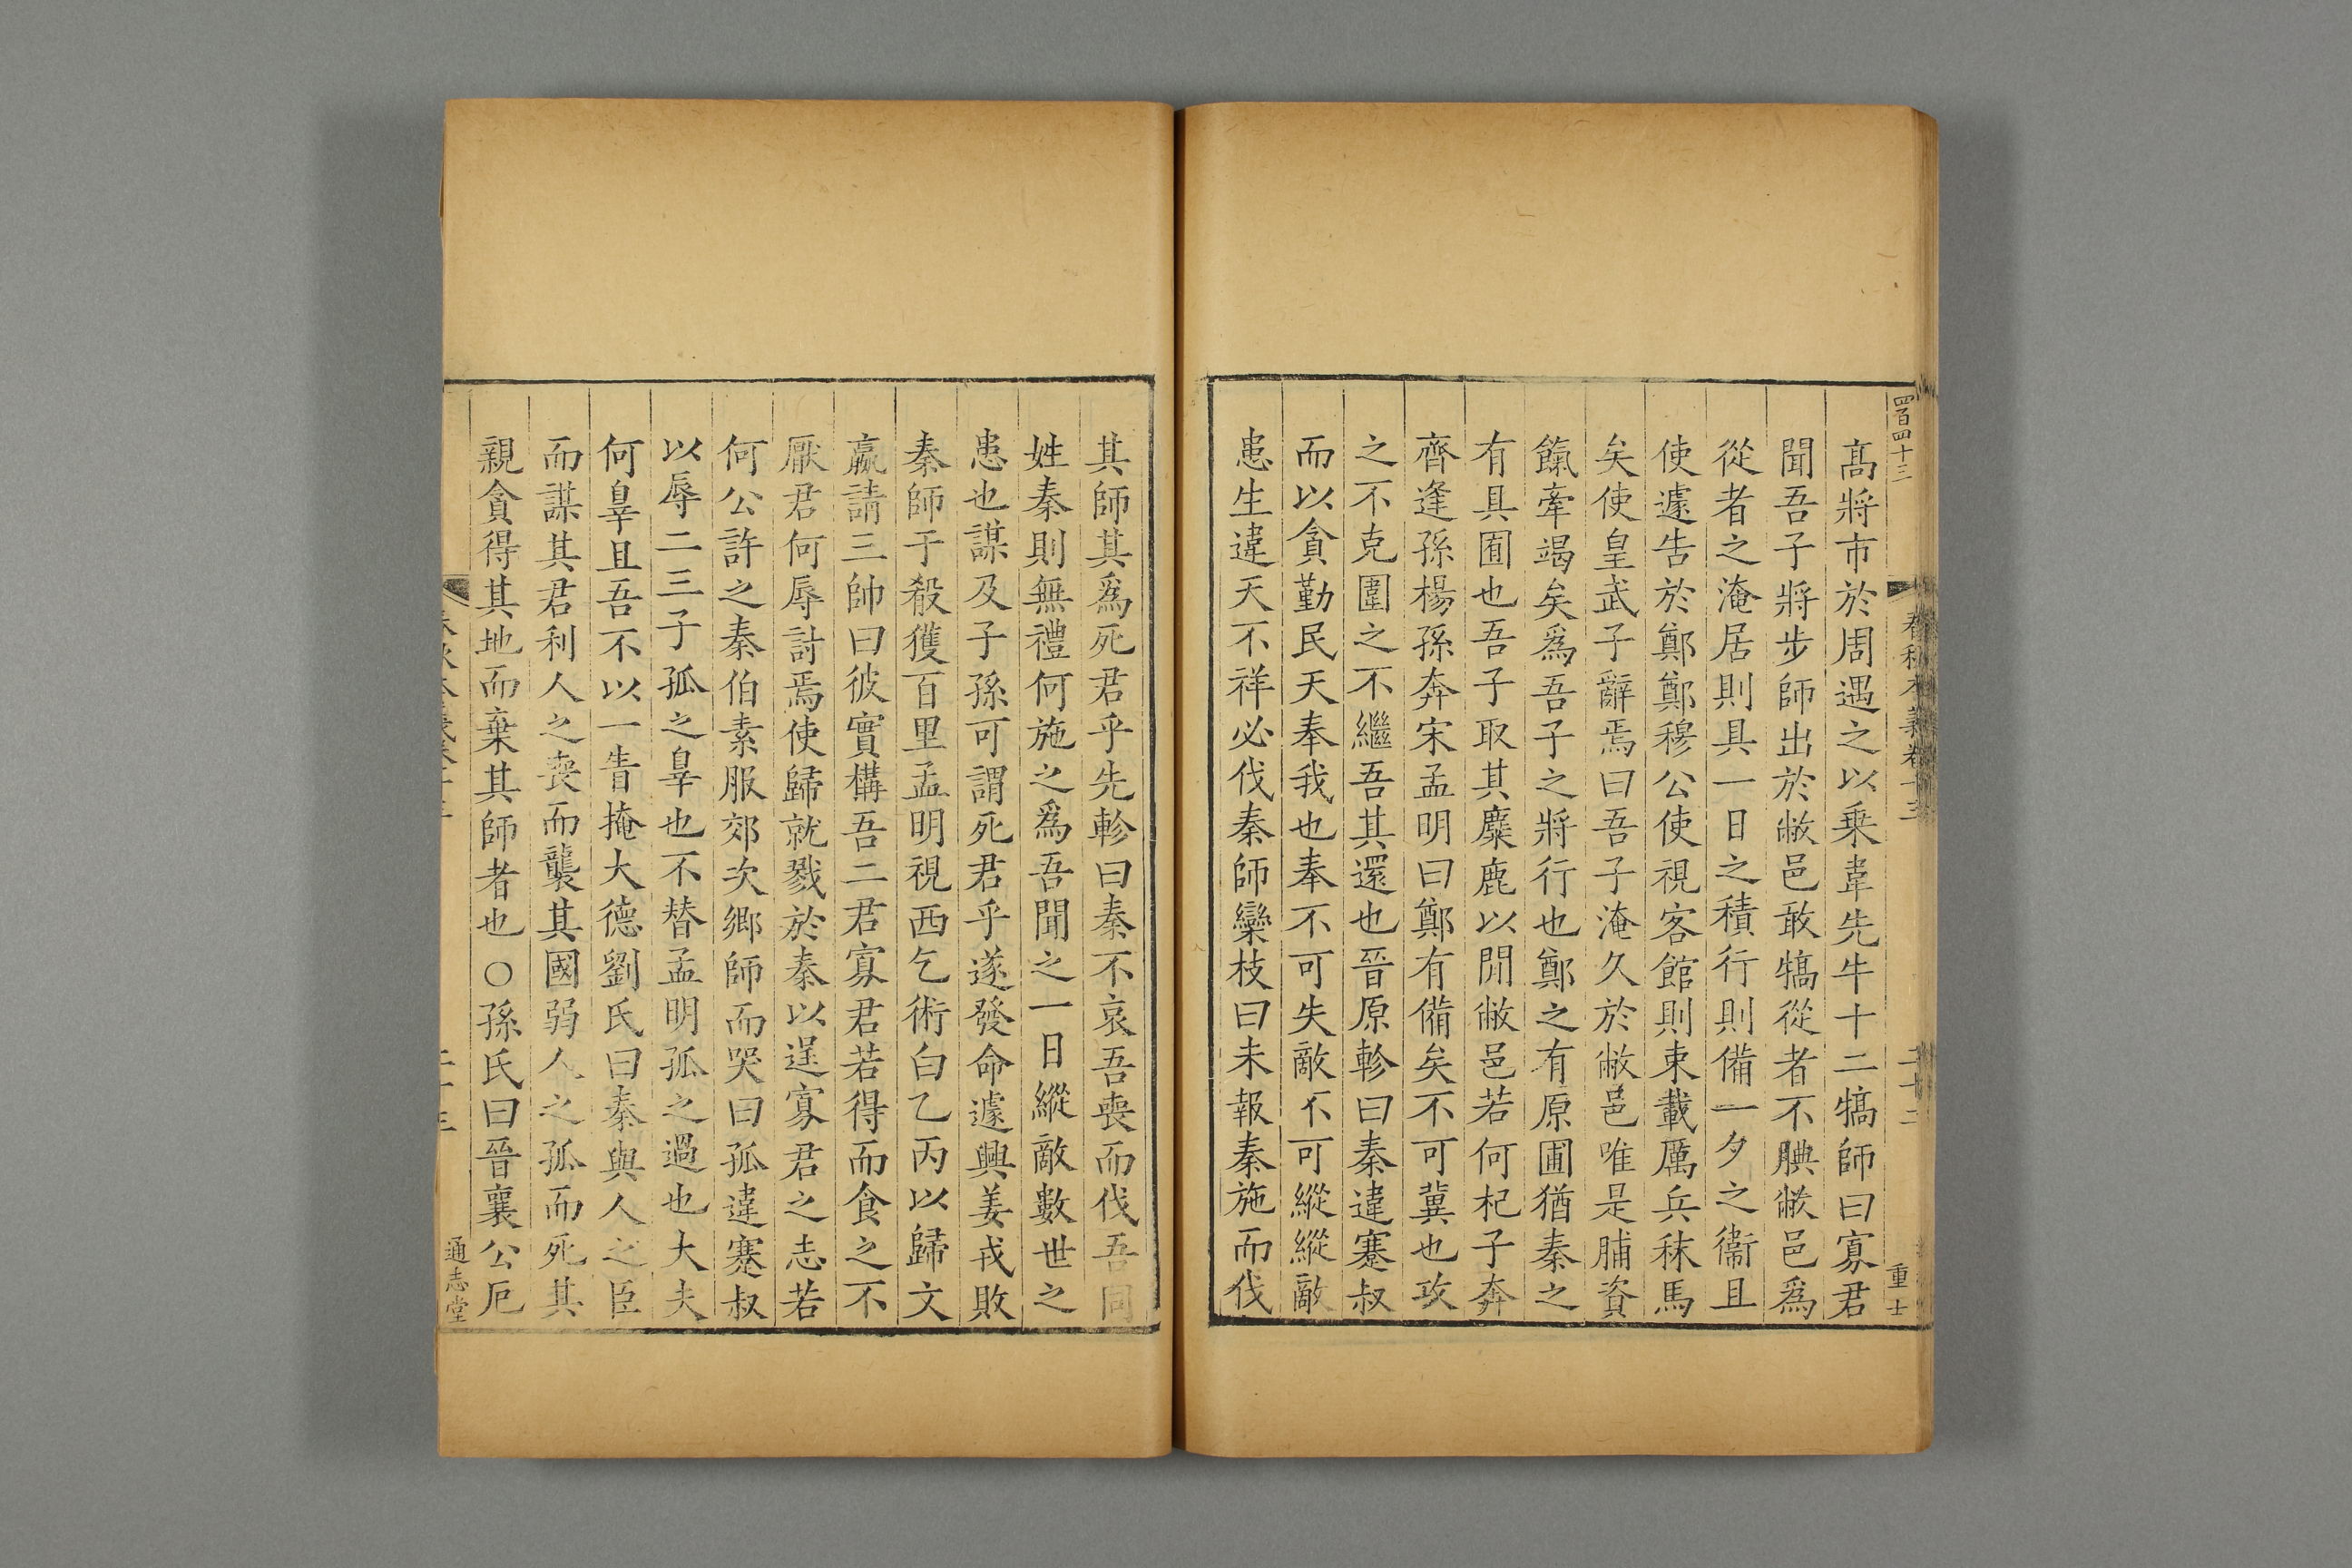 四百四十三
春秋本義卷十三
二十二
重士
髙將市於周遇之以乗韋先牛十二犒師曰寡君
聞吾子將步師出於敝邑敢犒從者不腆敝邑爲
從者之淹居則具一日之積行則備一夕之衞且
使遽告於鄭鄭穆公使視客館則束載厲兵秣馬
矣使皇武子辭焉曰吾子淹久於敝邑唯是脯資
餼牽竭矣爲吾子之將行也鄭之有原圃猶秦之
有具囿也吾子取其麋鹿以閒敝邑若何杞子奔
齊逢孫楊孫奔宋孟明曰鄭有備矣不可冀也攻
之不克圍之不繼吾其還也晉原軫曰秦違蹇叔
而以貪勤民天奉我也奉不可失敵不可縱縱敵
患生違天不祥必伐秦師欒枝曰未報秦施而伐
其師其爲死君乎先軫曰秦不哀吾喪而伐吾同
姓秦則無禮何施之爲吾聞之一日縱敵數世之
患也謀及子孫可謂死君乎遂發命遽興姜戎敗
秦師于殽獲百里孟明視西乞術白乙丙以歸文
嬴請三帥曰彼實構吾二君寡君若得而食之不
厭君何辱討焉使歸就戮於秦以逞寡君之志若
何公許之秦伯素服郊次鄉師而哭曰孤違蹇叔
以辱二三子孤之辠也不替孟明孤之過也大夫
何辠且吾不以一眚掩大德劉氏曰秦與人之臣
而謀其君利人之喪而襲其國弱人之孤而死其
親貪得其地而棄其師者也○孫氏曰晉襄公厄
通志堂